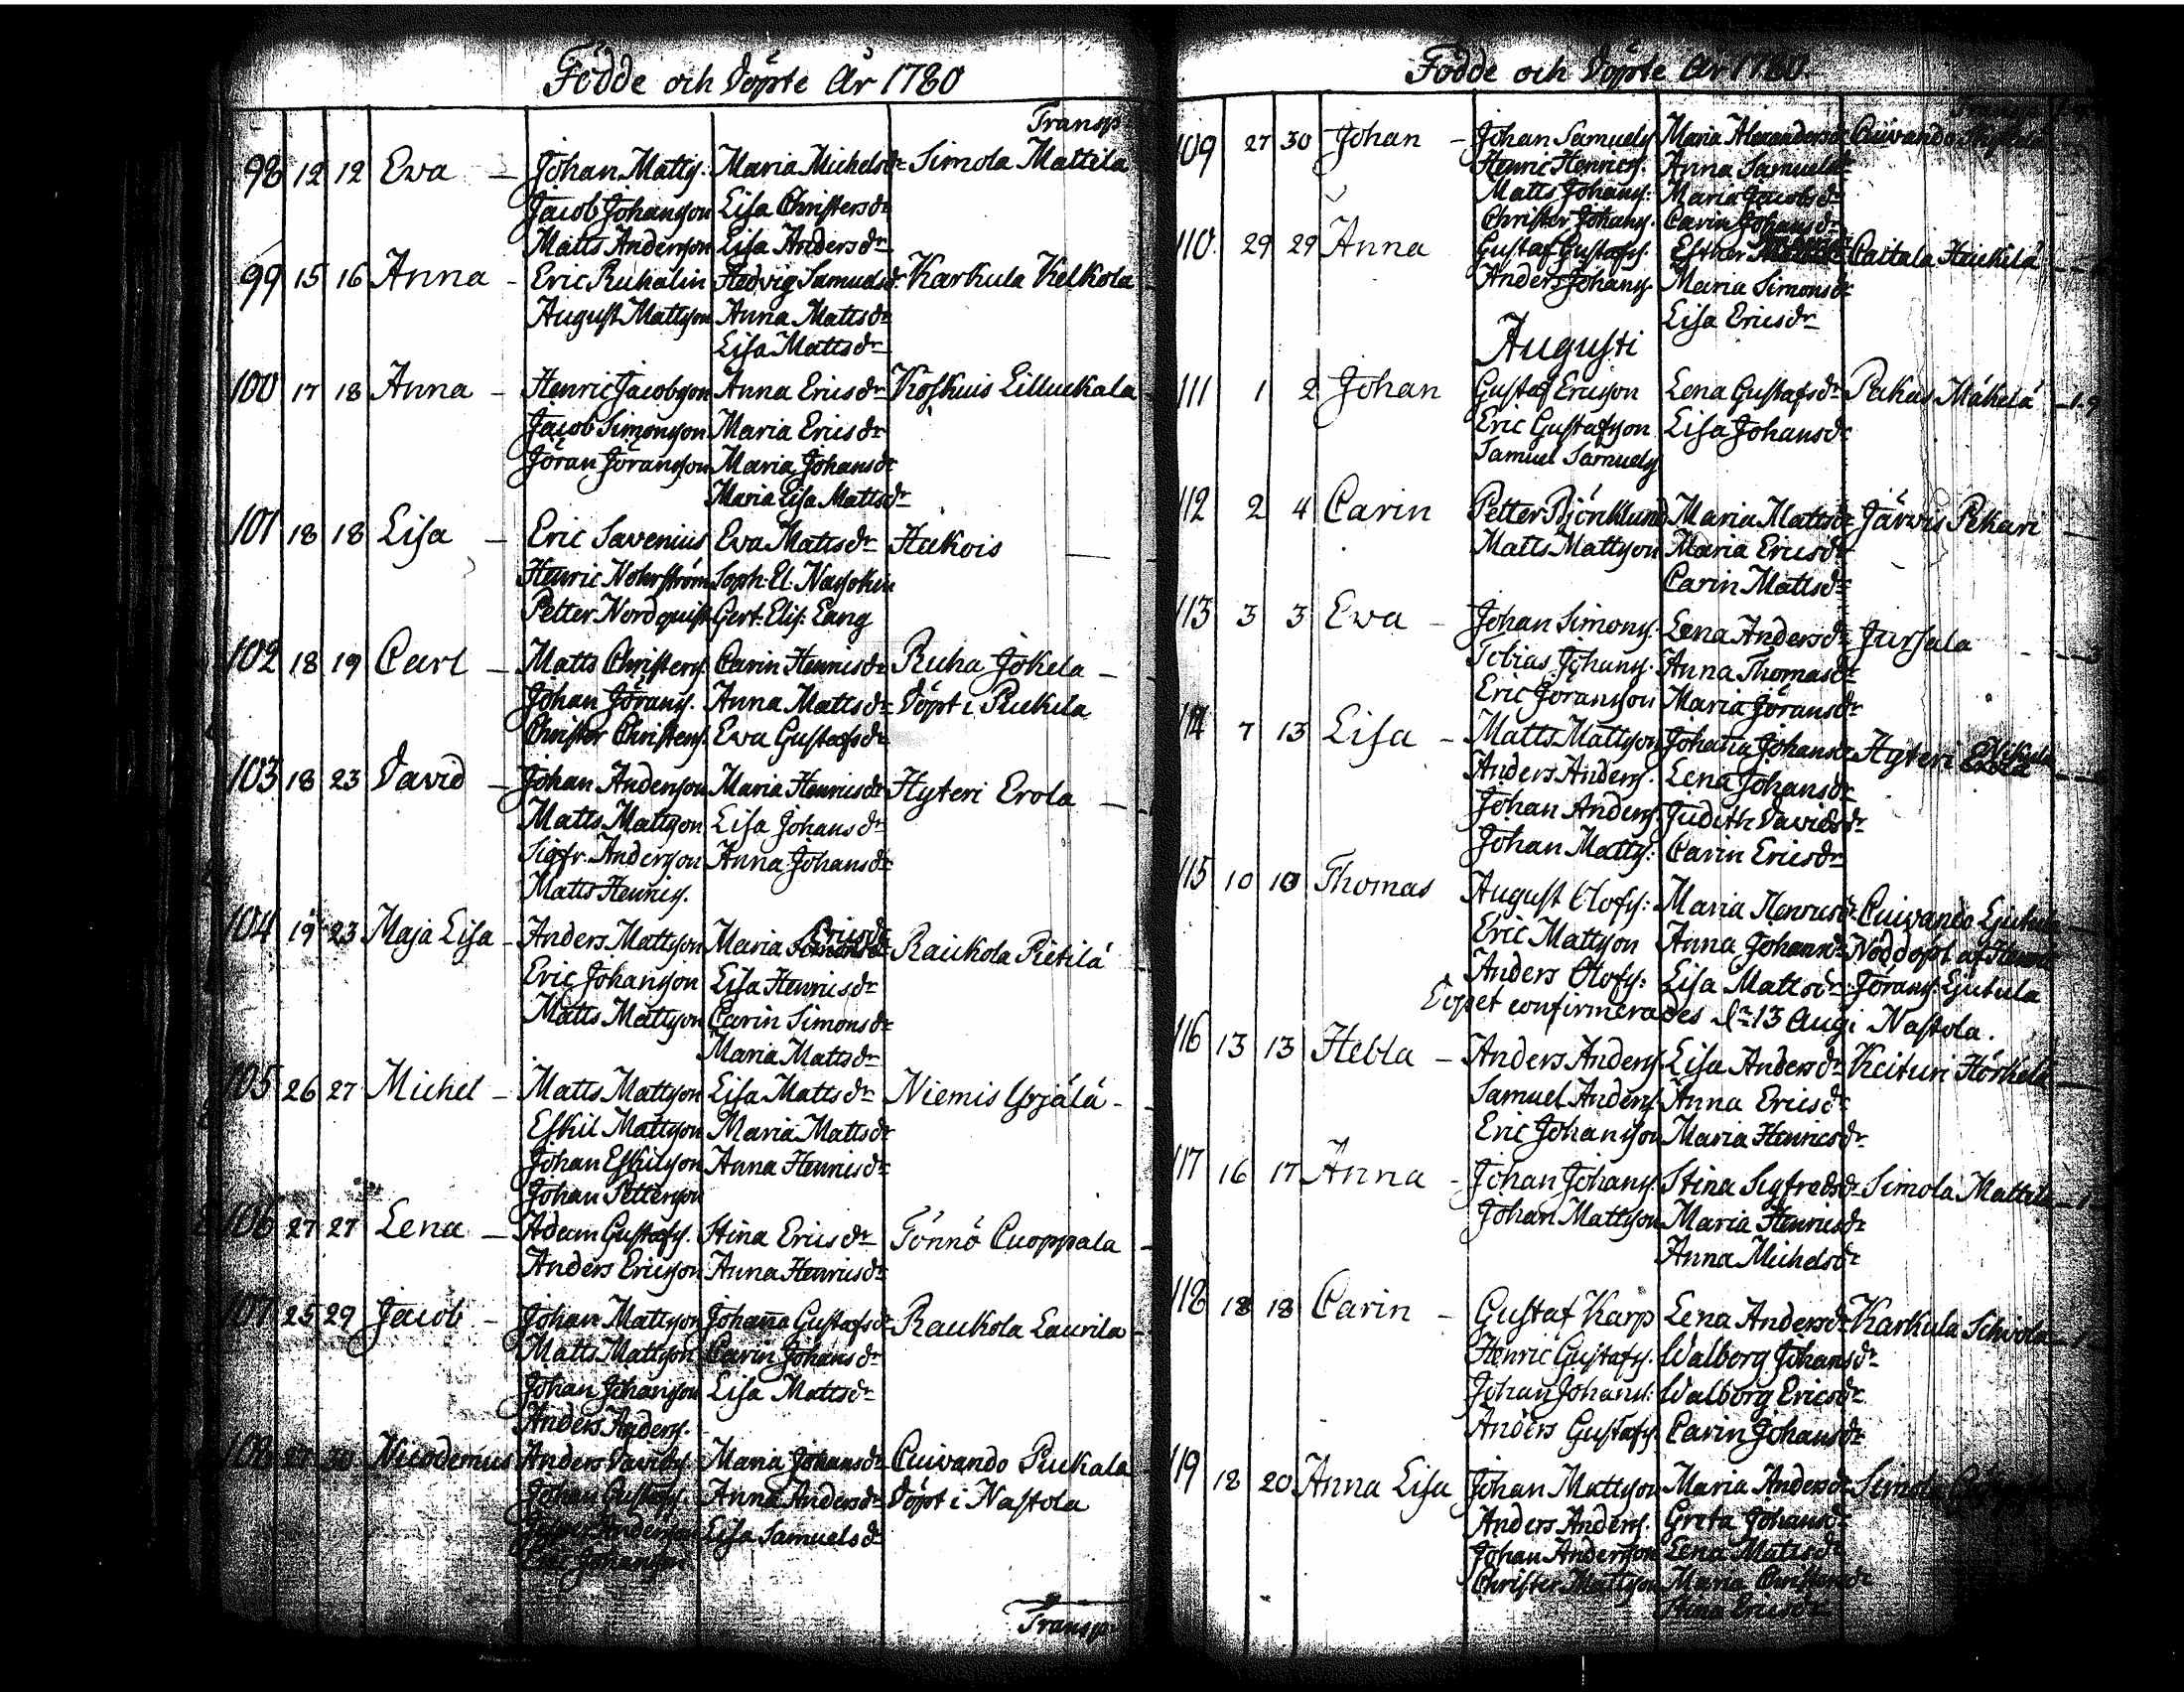 Födde och Döpte År 1780
Transp
98 12 12 Ewa - Johan Mattss. Maria Michelsdr Simola Mattila
Jacob Johansson Lisa Christersdr
Matts Andersson Lisa Andersdr
99 15 16 Anna - Eric Ruhalin Hedvig Samuelsdr Karkula Kelkola
August Mattsson Anna Mattsdr
Lisa Mattsdr
100 17 18 Anna - Henric Jacobsson Anna Ericsdr Koskuis Lilluckala
Jacob Simonsson Maria Ericsdr
Jöran Jöransson Maria Johansdr
Maria Lisa Mattsdr
101 18 18 Lisa - Eric Savenius Eva Mattsdr Hukois
Henric Nohrström Soph: El. Nassokin
Petter Nordquist Gert: Elis: Lang
102 18 19 Carl - Matts Christerss. Carin Henricsdr Ruha Jokela
Johan Jöranss. Anna Mattsdr Döpt i Puckila
Christer Christerss. Ewa Gustafsdr
103 18 23 David - Johan Andersson Maria Henricsdr Hyteri Erola
Matts Mattsson Lisa Johansdr
Sigfr. Andersson Anna Johansdr
Matts Henricss.
104 19 23 Maja Lisa - Anders Mattsson Maria Ericsdr Raukola Pietilä
Eric Johansson Lisa Henricsdr
Matts Mattsson Carin Simonsdr
Maria Mattsdr
105 26 27 Michel - Matts Mattsson Lisa Mattsdr Niemis Yrjälä
Eskil Mattsson Maria Mattsdr
Johan Eskilsson Anna Henricsdr
Johan Pettersson
106 27 27 Lena - Adam Gustafss. Stina Ericsdr Tönnö Cuoppala
Anders Ericsson Anna Henricsdr
107 25 29 Jacob - Johan Mattsson Johana Gustafsdr Raukola Laurila
Matts Mattsson Carin Johansdr
Johan Johansson Lisa Mattsdr
Anders Anderss.
108 27 30 Nicodemus Anders Davidss. Maria Johansdr Cuivando Puckala
Johan Gustafss. Anna Andersdr Döpt i Nastola
Andersson Lisa Samuelsdr
Eric Johansson
Transp
Födde och Döpte År 1780.
109 27 30 Johan - Johan Samuelss. Maria Alexandersdr Cuivando
Henric Henricss. Anna Samuelsdr
Matts Johanss: Maria Jacobsdr
Christer Johanss. Carin Johansdr
110. 29 29 Anna Gustaf Gustafss. Esther Caitala Heickilä
Anders Johanss. Maria Simonsdr
Lisa Ericsdr
Augusti
111 1 2 Johan Gustaf Ericsson Lena Gustafsdr Pakas Mäkelä
Eric Gustafsson Lisa Johansdr
Samuel Samuelss
112 2 4 Carin Petter Björklund Maria Mattsdr Järvis Pekari
Matts Mattsson Maria Ericsdr
Carin Mattsdr
113 3 3 Ewa - Johan Simonss. Lena Andersdr Jursala
Tobias Johanss. Anna Thomasdr
Eric Jöransson Maria Jöransdr
114 7 13 Lisa - Matts Mattsson Johana Johansdr Hyteri
Anders Anderss. Lena Johansdr
Johan Anderss. Judith Davidsdr
Johan Mattss: Carin Ericsdr
115 10 10 Thomas August Olofss: Maria Henricsdr Cuivando Ljutula
Eric Mattsson Anna Johansdr Nöddöpt af
Anders Olofss: Lisa Mattsdr Jöranss: Ljutula
Dopet confirmerades dn 13 Aug i Nastola.
116 13 13 Hebla - Anders Anderss. Lisa Andersdr Keituri Hörkelä
Samuel Anderss. Anna Ericsdr
Eric Johansson Maria Henricsdr
117 16 17 Anna - Johan Johanss. Stina Sigfredsdr Simola Mattila
Johan Mattsson Maria Henricsdr
Anna Michelsdr
118 18 18 Carin - Gustaf Karp Lena Andersdr Karkula Schvola
Henric Gustafss. Walborg Johansdr
Johan Johanss: Walborg Ericsdr
Anders Gustafss. Carin Johansdr
119 18 20 Anna Lisa Johan Mattsson Maria Andersdr Simola
Anders Anderss. Greta Johansdr
Johan Andersson Lena Mattsdr
Christer Mattsson Maria Christersdr
Stina Ericsdr